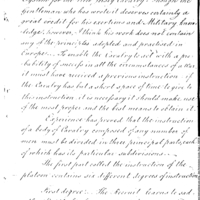 gentleman who has wrote it deserves certainly a
great credit for his exertions and Military know-
ledge; however, I think his work does not contain
any of the principles adopted and practised in
Europe. To enable the Cavalry to act with a pro-
bability of success in all the circumstances of a War
it must have received a previous instruction of
the Cavalry has but a short space of time to give to
this instruction it is necessary it should make use
of the most proper and the best means to obtain it.
Experience has proved that the instruction
of a body of Cavalry composed of any number of
men must be divided in three principal parts, each
of which has its particular subdivisions.
The first part called the instruction of the
platoon contains six different degrees of instruction
First degree. The Recruit learns to sad-